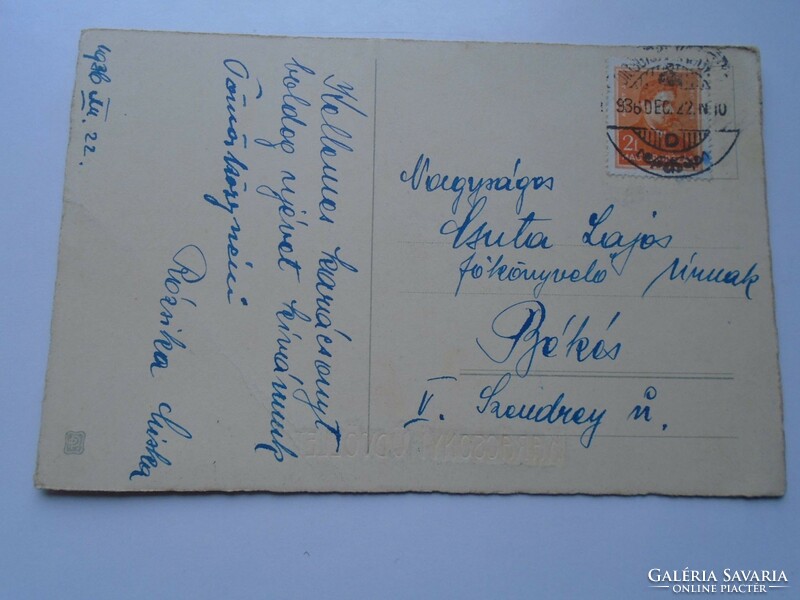 1936 XII. 22.
Kellemes karácsonyt
boldog újévet kívánunk
Rózsika Miska
936 DEC. 22. N. 10
D
Nagyságos
Csuta Lajos
főkönyvelő Úrnak
Békés
V. Szendrey u.
KARÁCSONYI ÜDVÖZLET
GALÉRIA SAVARIA
ONLINE PIACTÉR